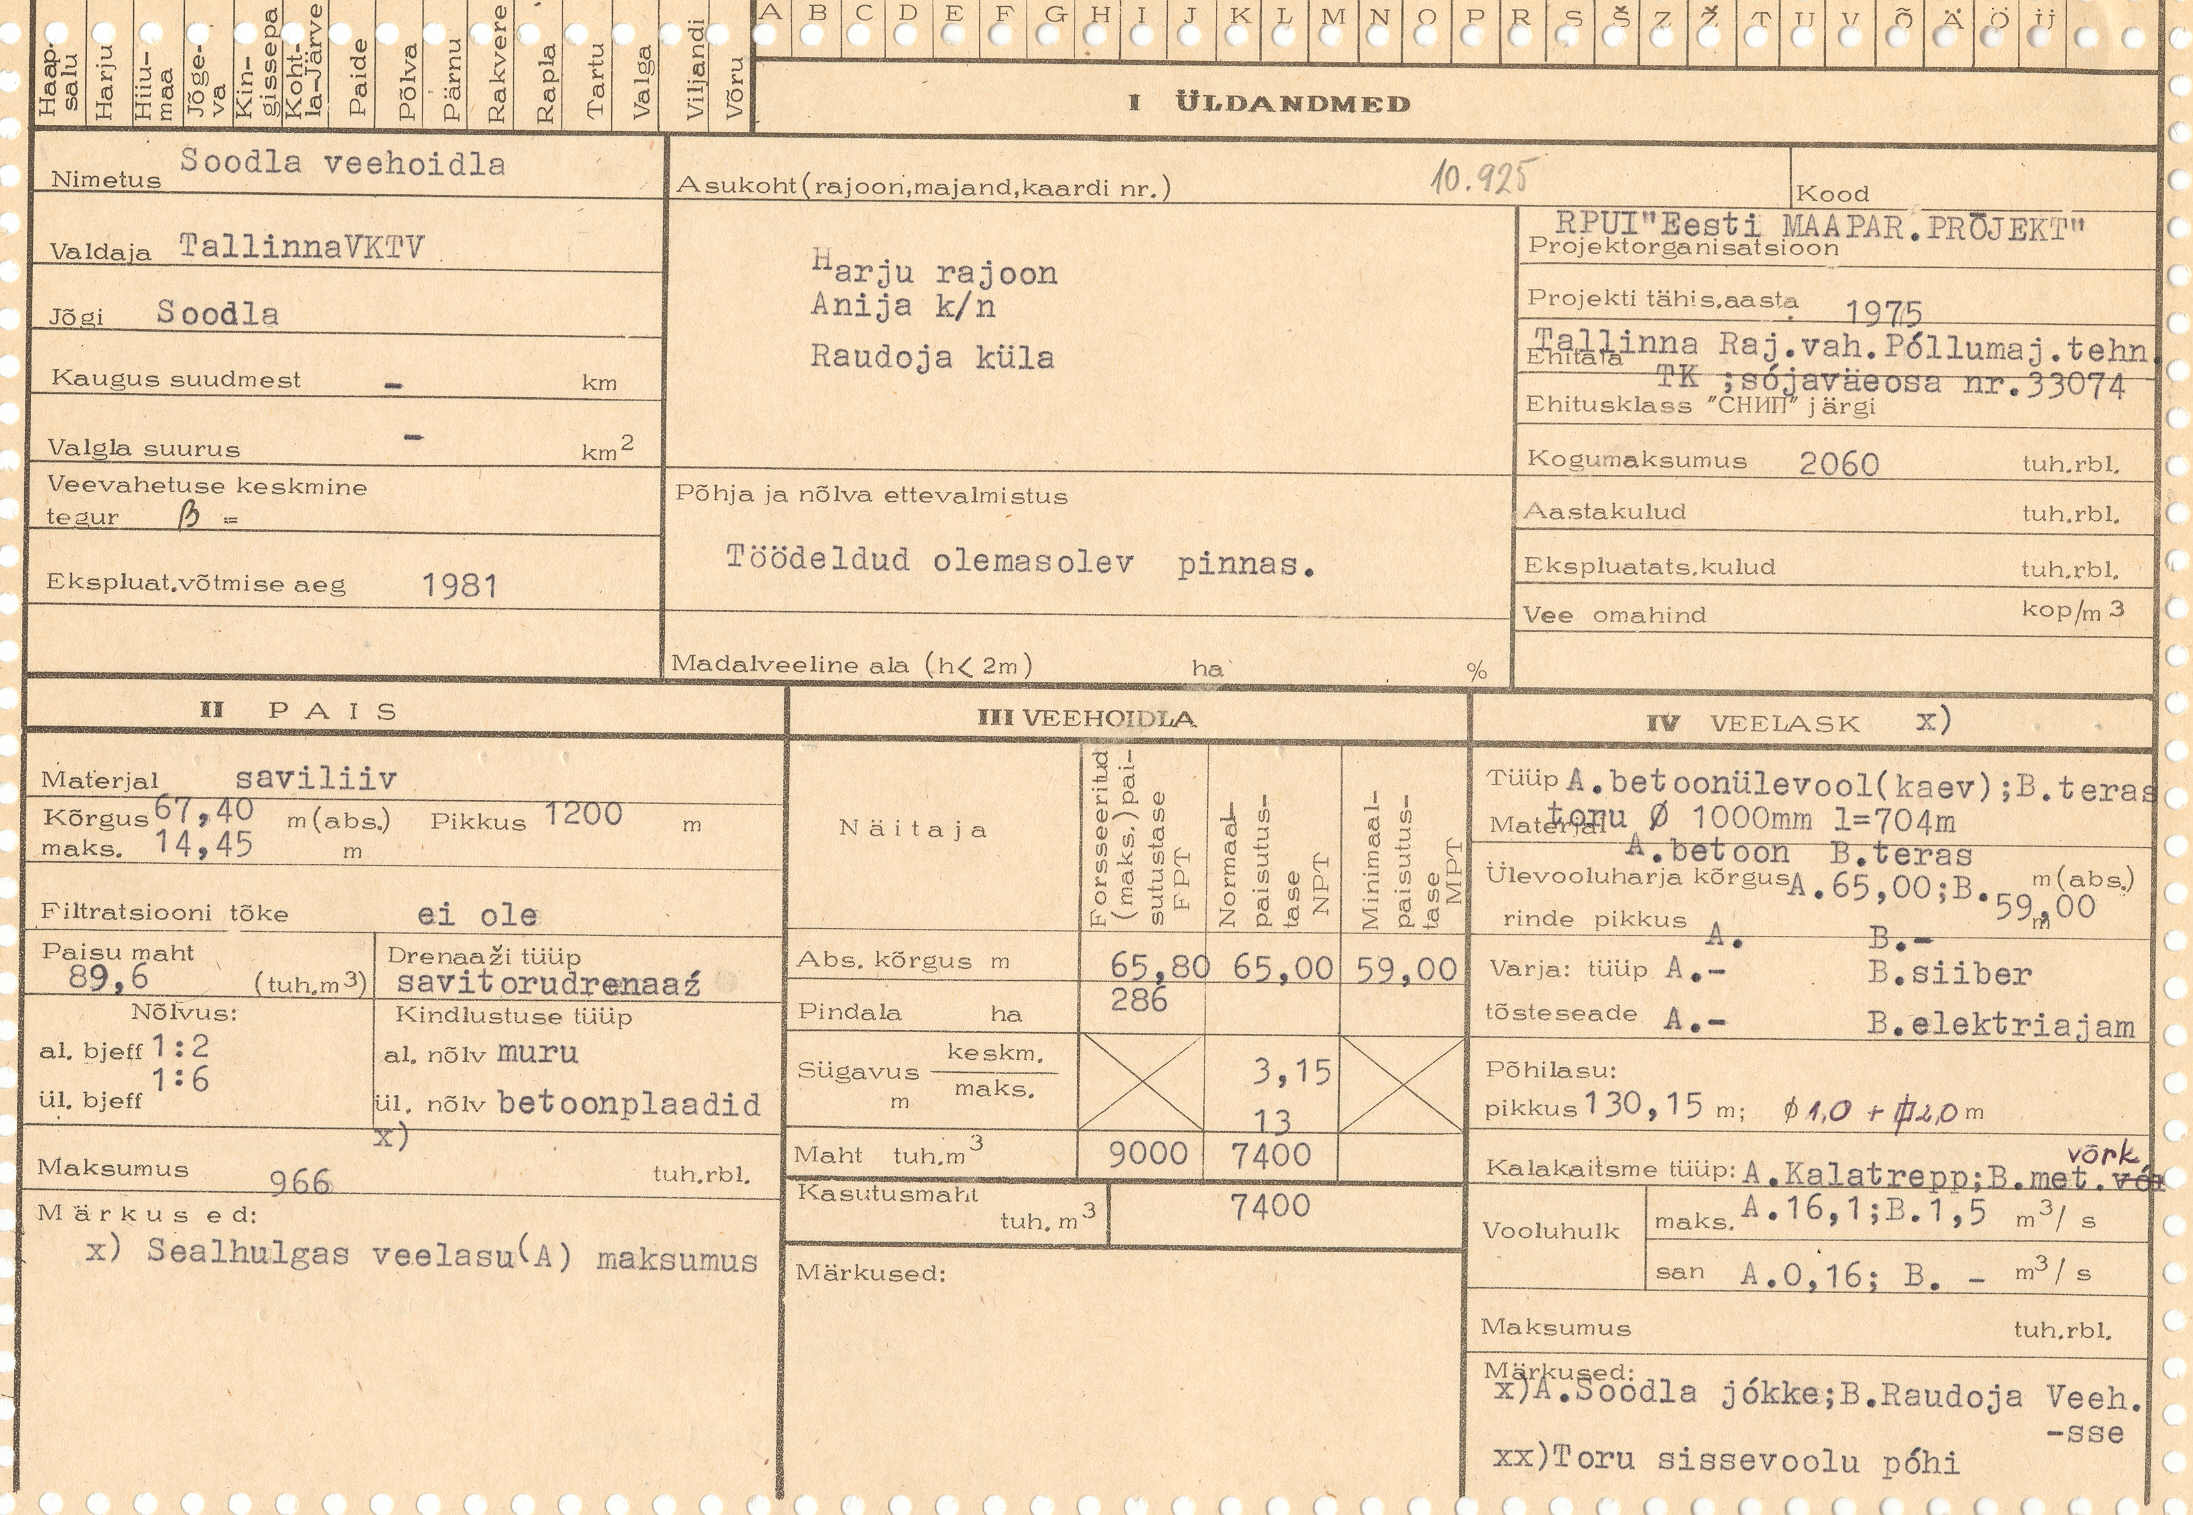 A B C D E F G H I J K L M N O P R S Š Z Ž T U V Õ Ä Ö Ü
Haap-salu Harju Hiiu-maa Jõge-va Kin-gissepa Koht-la-Järve Paide Põlva Pärnu Rakvere Rapla Tartu Valga Viljandi Võru
I ÜLDANDMED
Nimetus Soodla veehoidla
Valdaja TallinnaVKTV
Jõgi Soodla
Kaugus suudmest - km
Valgla suurus - km2
Veevahetuse keskmine
tegur β =
Ekspluat.võtmise aeg 1981
Asukoht(rajoon,majand,kaardi nr.) 10.925
Harju rajoon
Anija k/n
Raudoja küla
Põhja ja nõlva ettevalmistus
Töödeldud olemasolev pinnas.
Madalveeline ala (h< 2m) ha %
Kood
RPUI"Eesti MAAPAR.PROJEKT"
Projektorganisatsioon
Projekti tähis.aasta 1975
Tallinna Raj.vah.Póllumaj.tehn.
Ehitaja
TK ;sójaväeosa nr.33074
Ehitusklass "СНИП" järgi
Kogumaksumus 2060 tuh.rbl.
Aastakulud tuh.rbl.
Ekspluatats.kulud tuh.rbl.
Vee omahind kop/m3
II PAIS
Materjal saviliiv
Kõrgus 67,40 m(abs.) Pikkus 1200 m
maks. 14,45 m
Filtratsiooni tõke ei ole
Paisu maht
89,6 (tuh.m3)
Drenaaži tüüp
savitorudrenaaź
Nõlvus:
al. bjeff 1:2
1:6
ül. bjeff
Kindlustuse tüüp
al. nõlv muru
ül. nõlv betoonplaadid
x)
Maksumus 966 tuh.rbl.
Märkused:
x) Sealhulgas veelasu(A) maksumus
III VEEHOIDLA
Näitaja
Forsseeritud (maks.) pai-sutustase FPT
Normaal-paisutus-tase NPT
Minimaal-paisutus-tase MPT
Abs. kõrgus m 65,80 65,00 59,00
Pindala ha 286
Sügavus m
keskm. 3,15
maks. 13
Maht tuh.m3 9000 7400
Kasutusmaht
tuh. m3 7400
Märkused:
IV VEELASK x)
Tüüp A.betoonülevool(kaev);B.teras
toru Ø 1000mm l=704m
Materjal
A.betoon B.teras
Ülevooluharja kõrgus A.65,00;B.59,00 m(abs.)
rinde pikkus A. B.- m
Varja: tüüp A.- B.siiber
tõsteseade A.- B.elektriajam
Põhilasu:
pikkus 130,15 m; ø 1,0 + 2,0 m
võrk
Kalakaitsme tüüp: A.Kalatrepp;B.met.
Vooluhulk
maks. A.16,1;B.1,5 m3/ s
san A.0,16; B. - m3/ s
Maksumus tuh.rbl.
Märkused:
x)A.Soodla jókke;B.Raudoja Veeh.
-sse
xx)Toru sissevoolu póhi